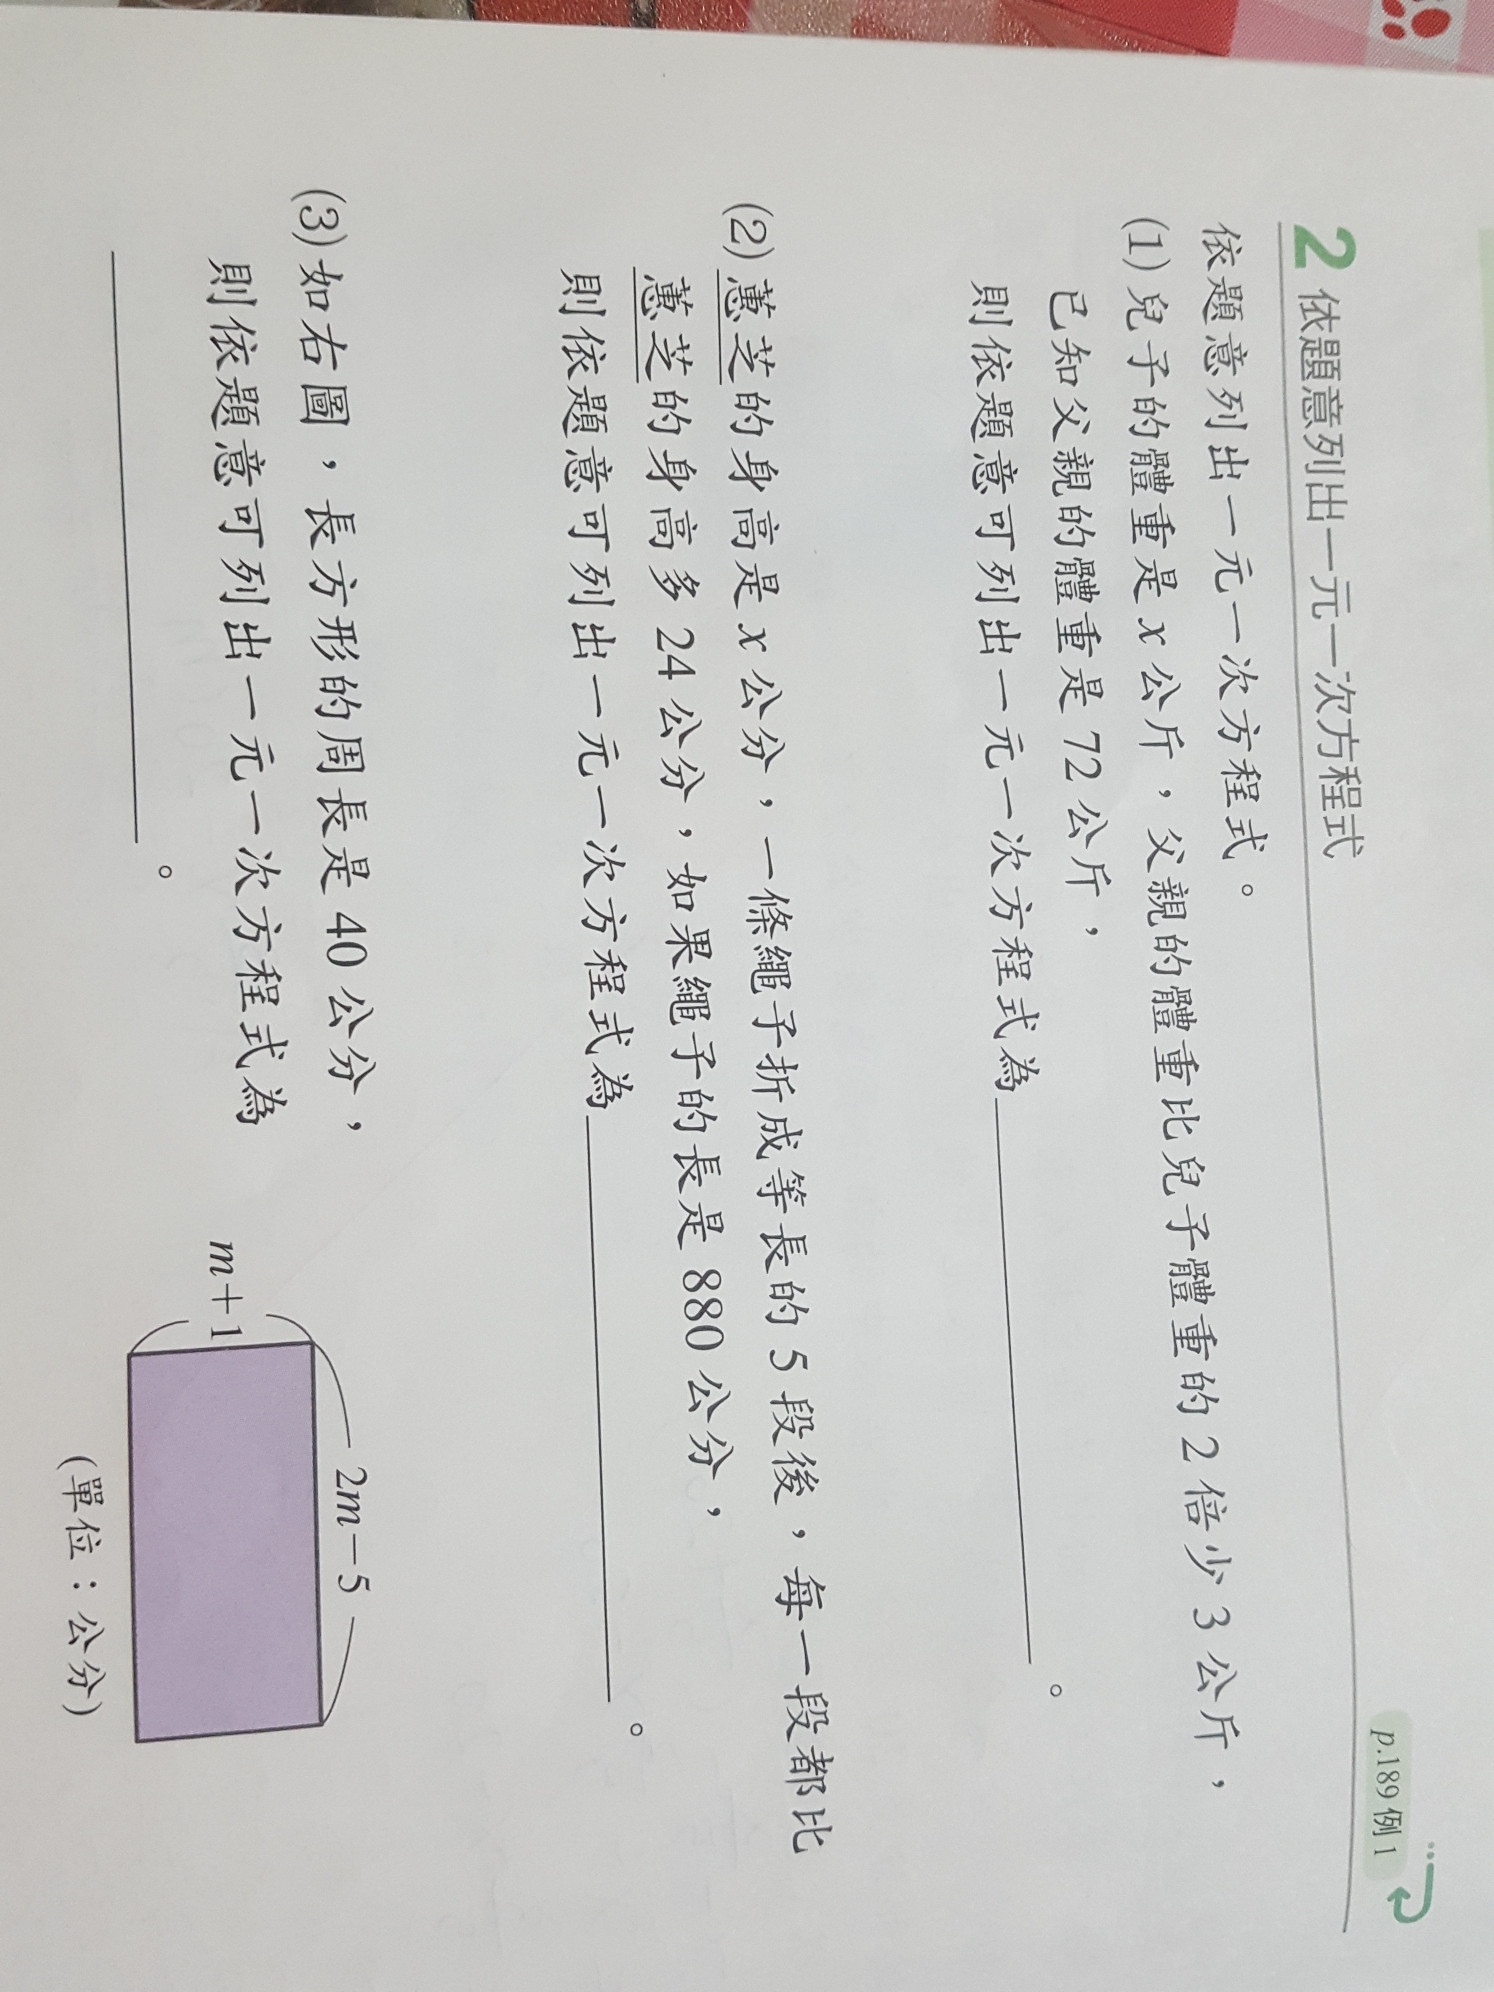 2 依題意列出一元一次方程式
p.189 例 1
依題意列出一元一次方程式。
(1) 兒子的體重是 x 公斤，父親的體重比兒子體重的 2 倍少 3 公斤，
已知父親的體重是 72 公斤，
則依題意可列出一元一次方程式為＿＿＿＿＿＿＿＿。
(2) 蕙芝的身高是 x 公分，一條繩子折成等長的 5 段後，每一段都比
蕙芝的身高多 24 公分，如果繩子的長是 880 公分，
則依題意可列出一元一次方程式為＿＿＿＿＿＿＿＿。
(3) 如右圖，長方形的周長是 40 公分，
則依題意可列出一元一次方程式為
＿＿＿＿＿＿＿＿。
2m－5
m＋1
(單位：公分)